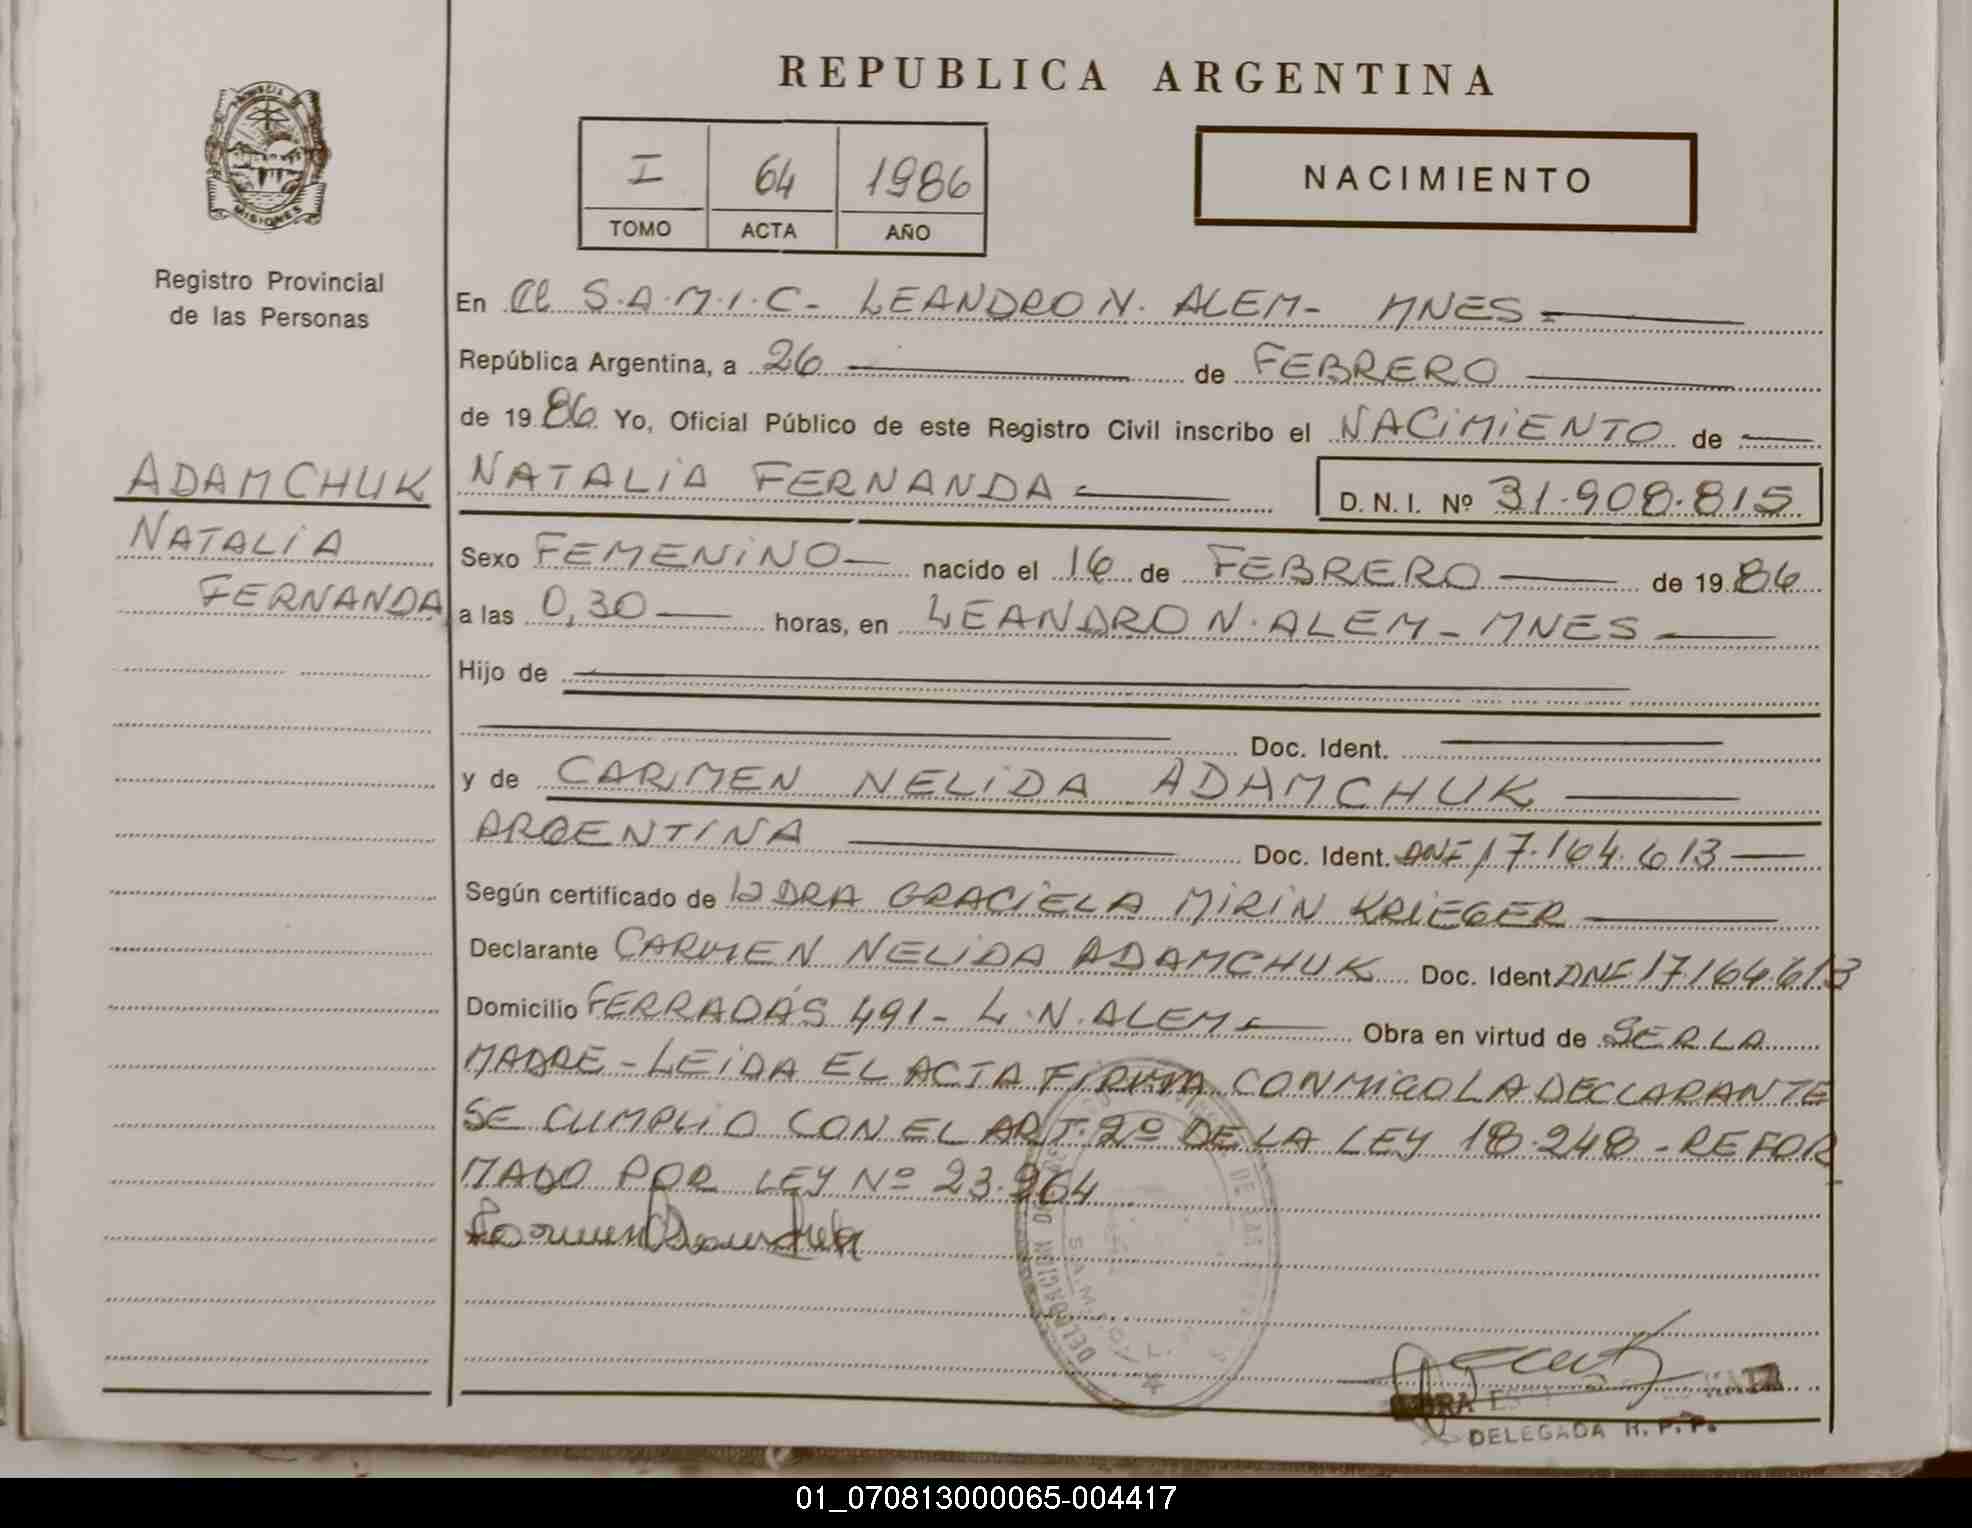 REPUBLICA ARGENTINA
PROVINCIA DE
MISIONES
Registro Provincial
de las Personas
I 64 1986
TOMO ACTA AÑO
NACIMIENTO
En el S.A.M.I.C- LEANDRO N. ALEM- MNES
República Argentina, a 26 de FEBRERO
de 1986 Yo, Oficial Público de este Registro Civil inscribo el NACIMIENTO de
ADAMCHUK
NATALIA
FERNANDA
NATALIA FERNANDA D. N. I. Nº 31.908.815
Sexo FEMENINO nacido el 16 de FEBRERO de 1986
a las 0,30 horas, en LEANDRO N. ALEM - MNES
Hijo de
Doc. Ident.
y de CARMEN NELIDA ADAMCHUK
ARGENTINA Doc. Ident. DNI 17.164.613
Según certificado de la DRA GRACIELA MIRIN KRIEGER
Declarante CARMEN NELIDA ADAMCHUK Doc. Ident. DNI 17.164.613
Domicilio FERRADÁS 491- L.N. ALEM Obra en virtud de SER LA
MADRE - LEIDA EL ACTA FIRMA CONMIGO LA DECLARANTE
SE CUMPLIO CON EL ART. 2º DE LA LEY 18.248 - REFOR
MADO POR LEY Nº 23.264
DELEGACION
S.A.M.I.C.
DELEGADA R.P.P.
01_070813000065-004417